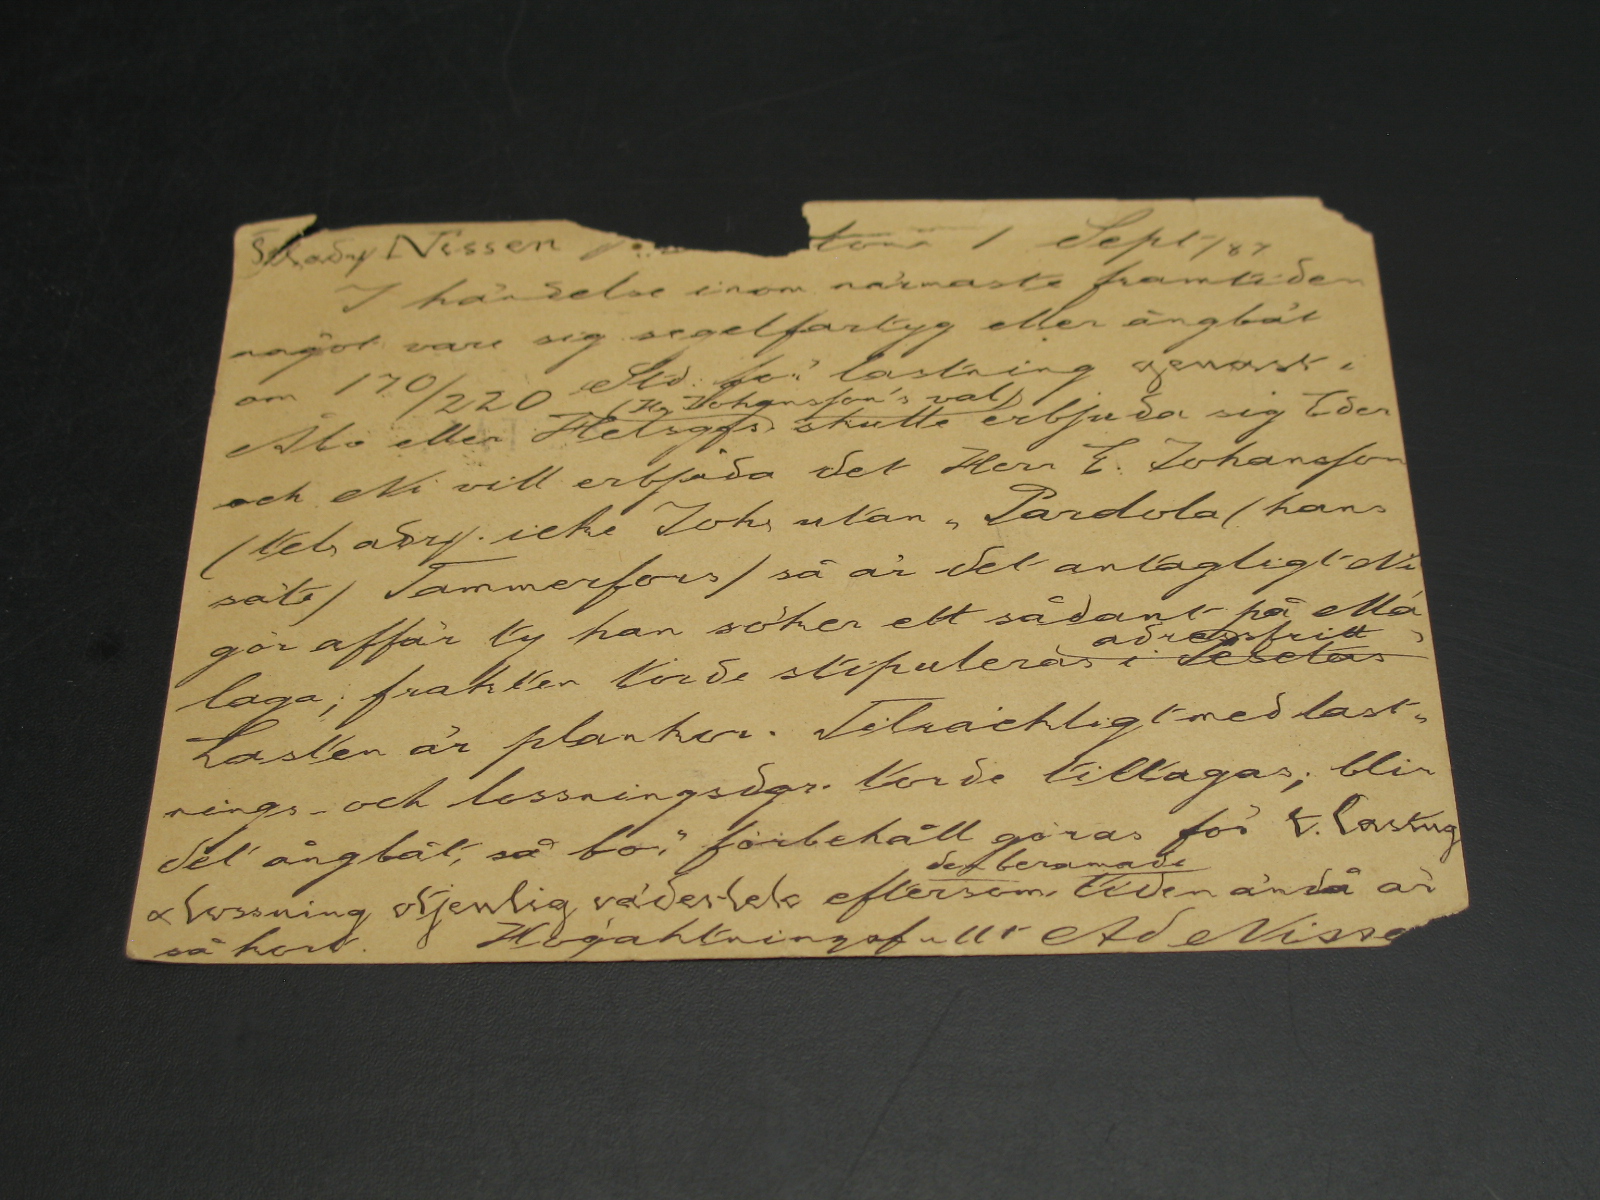 Nissen 1 Sept/87
I händelse inom närmaste framtiden
något vare sig segelfartyg eller ångbåt
om 170/220 Std. för lastning genast i
(Hr Johansson's val)
Åbo eller Helsgfs skulle erbjuda sig Eder
och Ni vill erbjuda det Herr E. Johansson
(tel, adr. icke Joh, utan „Pardola (hans
säte) Tammerfors) så är det antagligt Ni
gör affär ty han söker ett sådant på Má
adressfritt
laga; frakten torde stipuleras i Pesetas
Lasten är plankor. Tillräckligt med last„
nings- och lossningsdgr. torde tilltagas; blir
det ångbåt, så bör förbehåll göras för t. lastng
den beramade
& lossning otjenlig väderlek eftersom tiden ändå är
så kort. Högaktningsfullt Ad Nisse